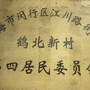 海市闵行区江川路街
鹤北新村
四居民委员